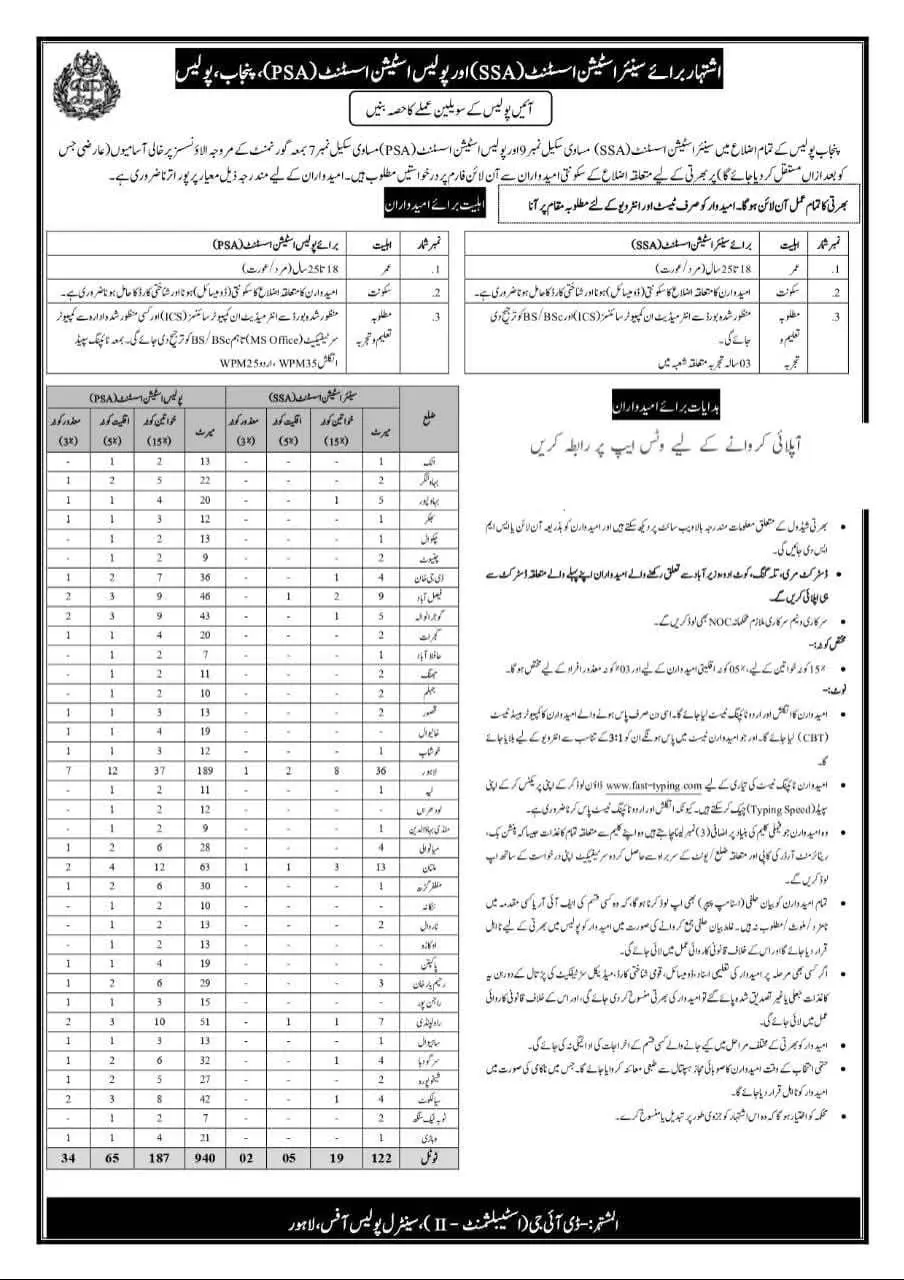 اشتہار برائے سینئر اسٹیشن اسسٹنٹ (SSA) اور پولیس اسٹیشن اسسٹنٹ (PSA)، پنجاب، پولیس
آئیں پولیس کے سویلین عملے کا حصہ بنیں
پنجاب پولیس کے تمام اضلاع میں سینئر اسٹیشن اسسٹنٹ (SSA) مساوی سکیل نمبر 9 اور پولیس اسٹیشن اسسٹنٹ (PSA) مساوی سکیل نمبر 7 بمعہ گورنمنٹ کے مروجہ الاؤنسز پر خالی آسامیوں (عارضی جس
کو بعد ازاں مستقل کر دیا جائے گا) پر بھرتی کے لیے متعلقہ اضلاع کے سکونتی امیدواران سے آن لائن فارم پر درخواستیں مطلوب ہیں۔ امیدواران کے لیے مندرجہ ذیل معیار پر پورا اترنا ضروری ہے۔
بھرتی کا تمام عمل آن لائن ہوگا۔ امیدوار کو صرف ٹیسٹ اور انٹرویو کے لئے مطلوبہ مقام پر آنا
اہلیت برائے امیدواران
نمبر شمار اہلیت برائے سینئر اسٹیشن اسسٹنٹ (SSA)
1. عمر 18 تا 25 سال (مرد/عورت)
2. سکونت امیدوارن کا متعلقہ اضلاع کا سکونتی (ڈومیسائل) ہونا اور شناختی کارڈ کا حامل ہونا ضروری ہے۔
3. مطلوبہ منظور شدہ بورڈ سے انٹرمیڈیٹ ان کمپیوٹر سائنسز (ICS) اور BS/BSc کو ترجیح دی
تعلیم و جائے گی۔
تجربہ 03 سالہ تجربہ متعلقہ شعبہ میں
نمبر شمار اہلیت برائے پولیس اسٹیشن اسسٹنٹ (PSA)
1. عمر 18 تا 25 سال (مرد/عورت)
2. سکونت امیدوارن کا متعلقہ اضلاع کا سکونتی (ڈومیسائل) ہونا اور شناختی کارڈ کا حامل ہونا ضروری ہے۔
3. مطلوبہ منظور شدہ بورڈ سے انٹرمیڈیٹ ان کمپیوٹر سائنسز (ICS) اور کسی منظور شدہ ادارہ سے کمپیوٹر
تعلیم و تجربہ سرٹیفکیٹ (MS Office) تاہم BS/BSc کو ترجیح دی جائے گی۔ بمعہ ٹائپنگ سپیڈ
انگلش WPM35، اردو WPM25
ہدایات برائے امیدواران
اپلائی کروانے کے لیے وٹس ایپ پر رابطہ کریں
• بھرتی شیڈول کے متعلق معلومات مندرجہ بالا ویب سائٹ پر دیکھ سکتے ہیں اور امیدوارن کو بذریعہ آن لائن یا ایس ایم
ایس دی جائیں گی۔
• ڈسٹرکٹ مری، تلہ گنگ، کوٹ ادو، وزیر آباد سے تعلق رکھنے والے امیدواران اپنے پہلے والے متعلقہ ڈسٹرکٹ سے
ہی اپلائی کریں گے۔
• سرکاری و نیم سرکاری ملازم محکمانہ NOC بھی لوڈ کریں گے۔
مختص کوٹہ:-
• 15% کوٹہ خواتین کے لیے، 05% کوٹہ اقلیتی امیدوارن کے لیے اور 03% کوٹہ معذور افراد کے لیے مختص ہوگا۔
نوٹ:-
• امیدوارن کا انگلش اور اردو ٹائپنگ ٹیسٹ لیا جائے گا۔ اسی دن صرف پاس ہونے والے امیدوارن کا کمپیوٹر بیسڈ ٹیسٹ
(CBT) لیا جائے گا۔ اور جو امیدوارن ٹیسٹ میں پاس ہونگے ان کو 3:1 کے تناسب سے انٹرویو کے لیے بلایا جائے
گا۔
• امیدوارن ٹائپنگ ٹیسٹ کی تیاری کے لیے www.fast-typing.com ڈاؤن لوڈ کر کے اپنی پریکٹس کر کے اپنی
سپیڈ (Typing Speed) چیک کر سکتے ہیں۔ کیونکہ انگلش اور اردو ٹائپنگ ٹیسٹ پاس کرنا ضروری ہے۔
• وہ امیدوارن جو فیملی کلیم کی بنیاد پر اضافی (3) نمبر لینا چاہتے ہیں وہ اپنے کلیم سے متعلقہ تمام کاغذات جیسا کہ پنشن بک،
ریٹائرمنٹ آرڈر کی کاپی اور متعلقہ ضلع/یونٹ کے سربراہ سے حاصل کردہ سرٹیفکیٹ اپنی درخواست کے ساتھ اپ
لوڈ کریں گے۔
• تمام امیدوارن کو بیان حلفی (اسٹامپ پیپر) بھی اپ لوڈ کرنا ہوگا، کہ وہ کسی قسم کی ایف آئی آر یا کسی مقدمہ میں
نامزد/ملوث/مطلوب نہ ہیں۔ غلط بیان حلفی جمع کروانے کی صورت میں امیدوار کو پولیس میں بھرتی کے لیے نااہل
قرار دیا جائے گا اور اس کے خلاف قانونی کاروائی عمل میں لائی جائے گی۔
• اگر کسی بھی مرحلہ پر امیدوار کی تعلیمی اسناد، ڈومیسائل، قومی شناختی کارڈ، میڈیکل سرٹیفکیٹ کی پڑتال کے دوران یہ
کاغذات جعلی یا غیر تصدیق شدہ پائے گئے تو امیدوار کی بھرتی منسوخ کر دی جائے گی، اور اس کے خلاف قانونی کاروائی
عمل میں لائی جائے گی۔
• امیدوار کو بھرتی کے مختلف مراحل میں کیے جانے والے کسی قسم کے اخراجات کی ادائیگی نہ کی جائے گی۔
• حتمی انتخاب کے وقت امیدوارن کا صوبائی مجاز ہسپتال سے طبی معائنہ کروایا جائے گا۔ جس میں ناکامی کی صورت میں
امیدوار کو نااہل قرار دیا جائے گا۔
• محکمہ کو اختیار ہوگا کہ وہ اس اشتہار کو جزوی طور پر تبدیل یا منسوخ کرے۔
ضلع سینئر اسٹیشن اسسٹنٹ (SSA) پولیس اسٹیشن اسسٹنٹ (PSA)
میرٹ خواتین کوٹہ (15%) اقلیت کوٹہ (5%) معذور کوٹہ (3%) میرٹ خواتین کوٹہ (15%) اقلیت کوٹہ (5%) معذور کوٹہ (3%)
اٹک 1 - - - 13 2 1 -
بہاولنگر 2 - - - 22 5 2 1
بہاولپور 5 1 - - 20 4 1 1
بھکر 1 - - - 12 3 1 1
چکوال 1 - - - 13 2 1 -
چنیوٹ 2 - - - 9 2 1 -
ڈی جی خان 4 1 - - 36 7 2 1
فیصل آباد 9 2 1 - 46 9 3 2
گوجرانوالہ 5 1 - - 43 9 3 2
گجرات 2 - - - 20 4 1 1
حافظ آباد 1 - - - 7 2 1 -
جھنگ 2 - - - 11 2 1 -
جہلم 2 - - - 10 2 1 -
قصور 2 - - - 13 3 1 1
خانیوال - - - - 19 4 1 1
خوشاب 1 - - - 12 3 1 1
لاہور 36 8 2 1 189 37 12 7
لیہ 1 - - - 11 2 1 -
لودھراں - - - - 12 2 1 -
منڈی بہاؤالدین 1 - - - 9 2 1 -
میانوالی 4 - - - 28 6 2 1
ملتان 13 3 1 1 63 12 4 2
مظفر گڑھ 1 - - - 30 6 2 1
ننکانہ - - - - 10 2 1 -
نارووال 2 - - - 13 2 1 -
اوکاڑہ - - - - 13 2 1 -
پاکپتن - - - - 19 4 1 1
رحیم یار خان 3 - - - 29 6 2 1
راجن پور - - - - 15 3 1 1
راولپنڈی 7 1 1 - 51 10 3 2
ساہیوال 1 - - - 13 3 1 1
سرگودہا 4 1 - - 32 6 2 1
شیخوپورہ 2 - - - 27 5 2 1
سیالکوٹ 4 1 - - 42 8 3 2
ٹوبہ ٹیک سنگھ 2 - - - 7 2 1 -
وہاڑی 1 - - - 21 4 1 1
ٹوٹل 122 19 05 02 940 187 65 34
المشتہر:- ڈی آئی جی (اسٹیبلشمنٹ - II)، سینٹرل پولیس آفس، لاہور